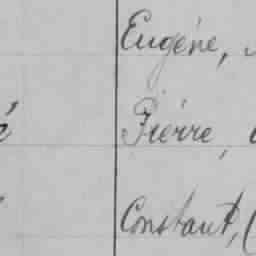 Eugéne,
Piérre,
Constant,